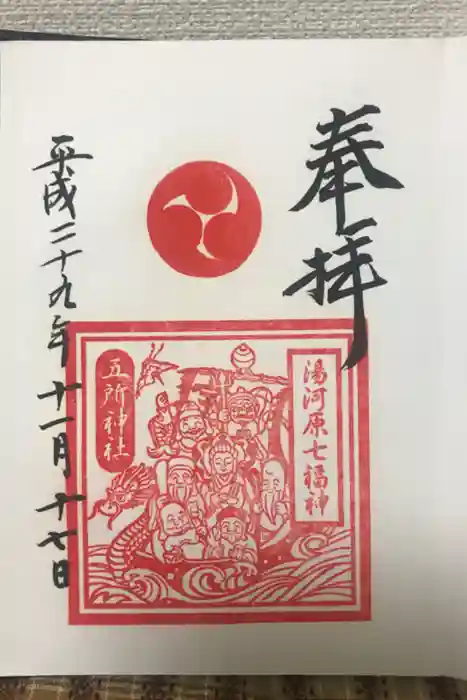 奉拝
湯河原七福神
五所神社
平成二十九年十一月十七日